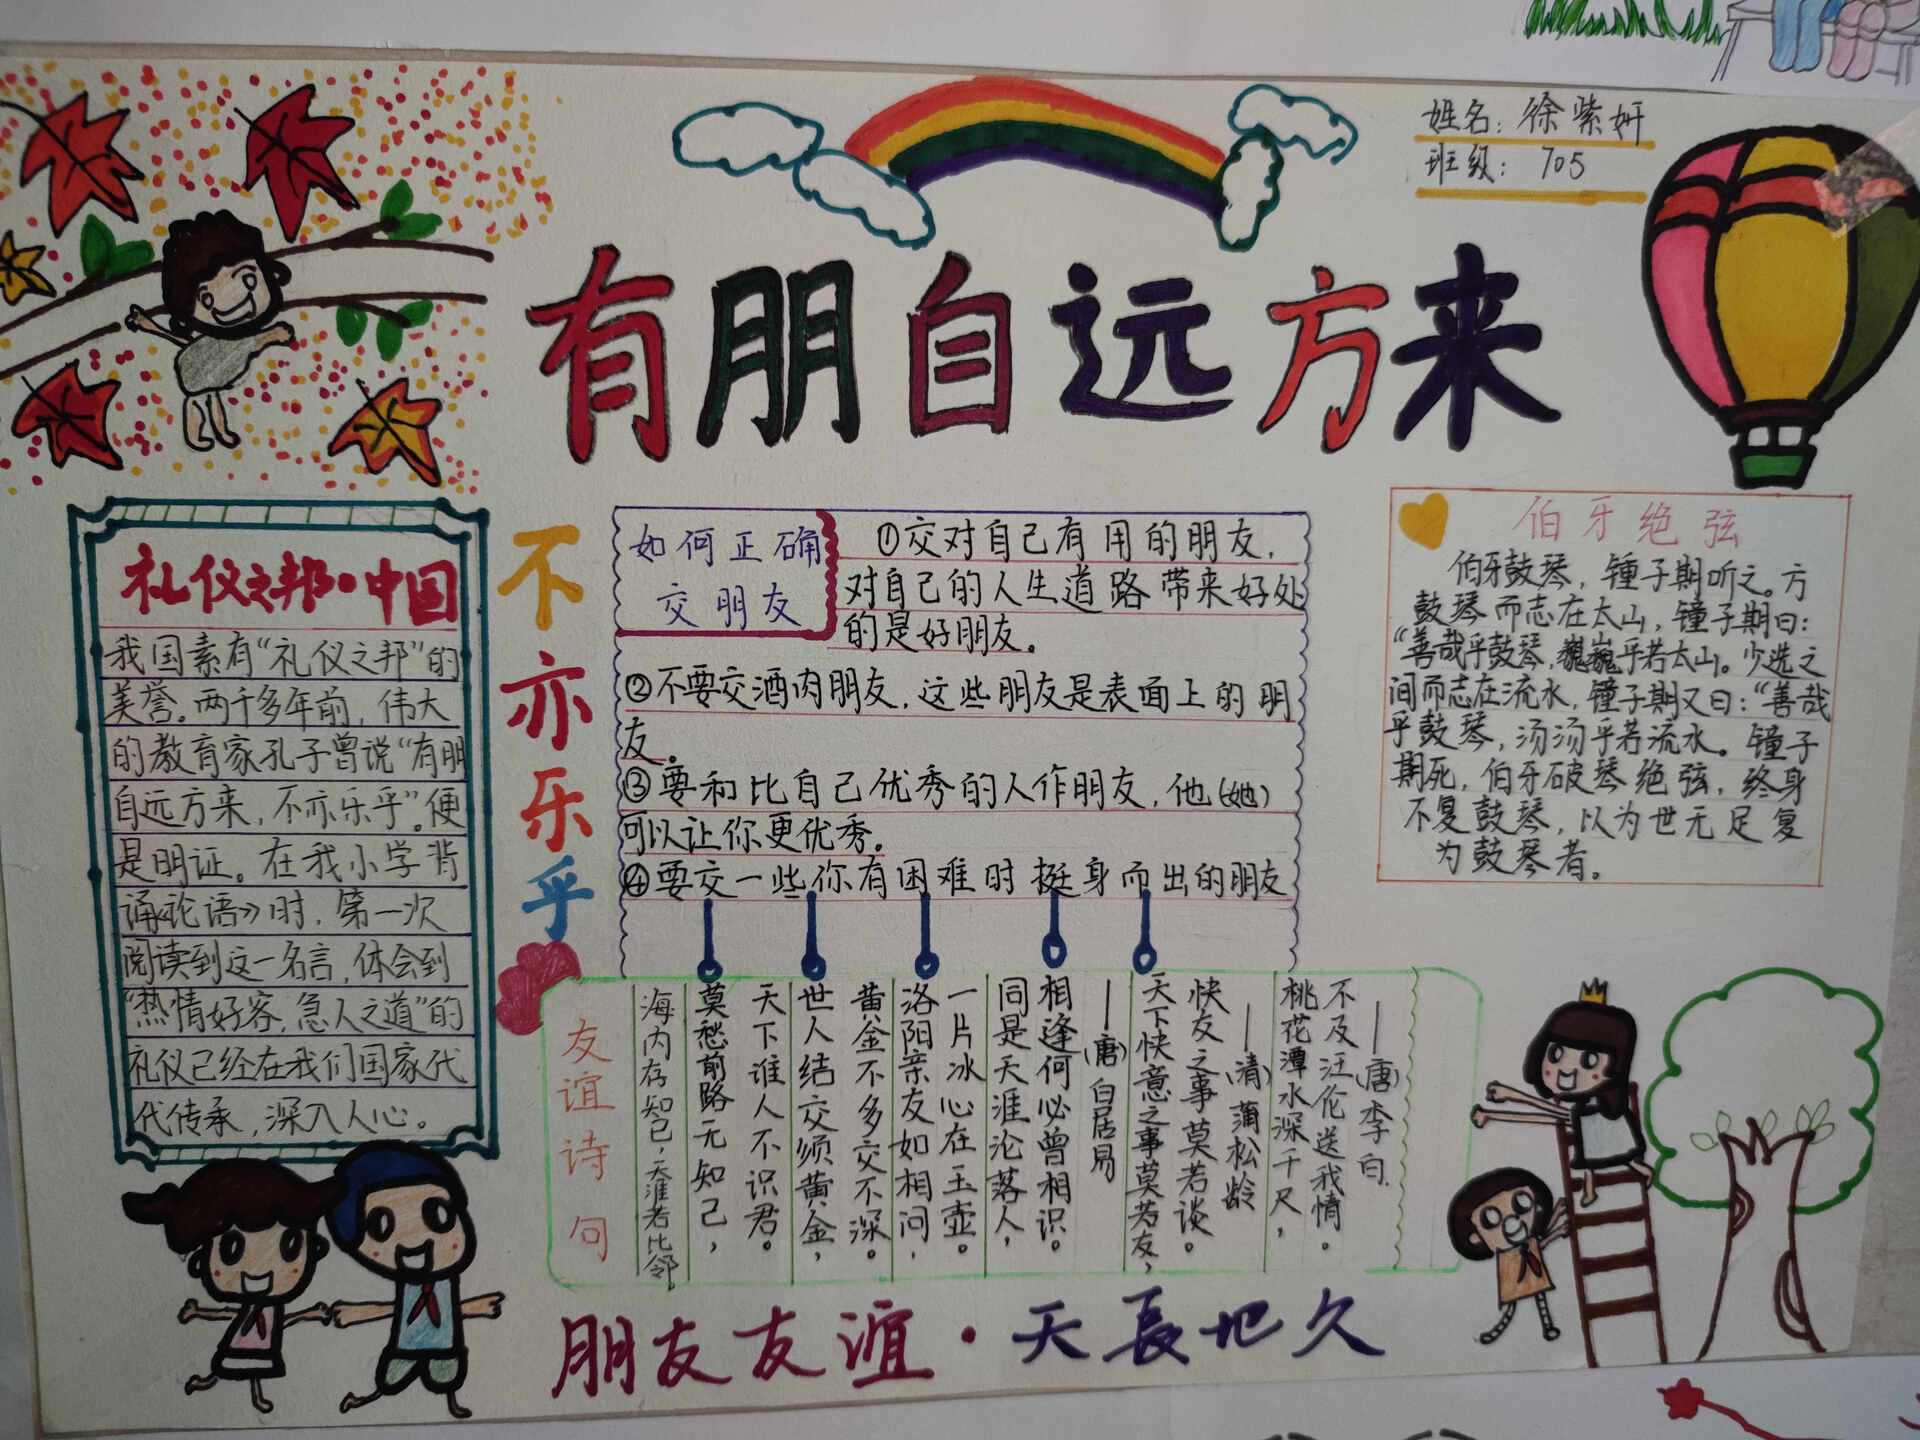 姓名：徐紫妍
班级：705
有朋自远方来
不亦乐乎
礼仪之邦·中国
我国素有“礼仪之邦”的
美誉。两千多年前，伟大
的教育家孔子曾说“有朋
自远方来，不亦乐乎”。便
是明证。在我小学背
诵《论语》时，第一次
阅读到这一名言，体会到
“热情好客，急人之道”的
礼仪已经在我们国家代
代传承，深入人心。
如何正确
交朋友
①交对自己有用的朋友，
对自己的人生道路带来好处
的是好朋友。
②不要交酒肉朋友，这些朋友是表面上的朋
友。
③要和比自己优秀的人作朋友，他（她）
可以让你更优秀。
④要交一些你有困难时挺身而出的朋友
伯牙绝弦
伯牙鼓琴，锺子期听之。方
鼓琴而志在太山，锺子期曰：
“善哉乎鼓琴，巍巍乎若太山。少选之
间而志在流水，锺子期又曰：“善哉
乎鼓琴，汤汤乎若流水。锺子
期死，伯牙破琴绝弦，终身
不复鼓琴，以为世无足复
为鼓琴者。
友谊诗句
海内存知己，天涯若比邻。
莫愁前路无知己，
天下谁人不识君。
世人结交须黄金，
黄金不多交不深。
洛阳亲友如相问，
一片冰心在玉壶。
同是天涯沦落人，
相逢何必曾相识。
——（唐）白居易
天下快意之事莫若友，
快友之事莫若谈。
——（清）蒲松龄
桃花潭水深千尺，
不及汪伦送我情。
——（唐）李白.
朋友友谊·天長地久